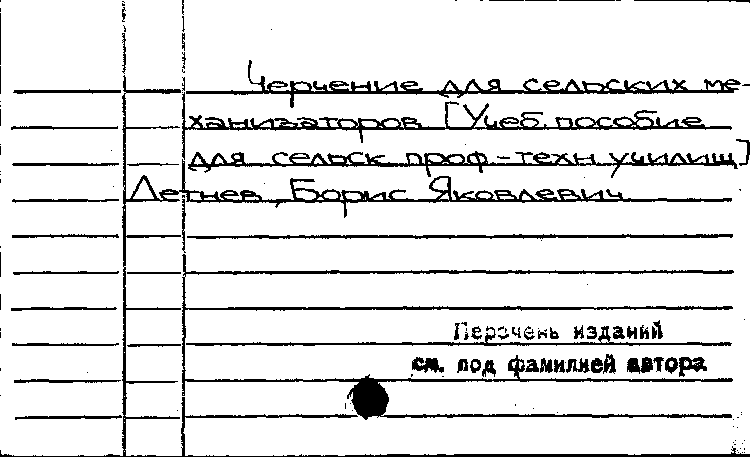 Черчение для сельских ме-
ханизаторов [Учеб. пособие
для сельск. проф.-техн. училищ]
Летнев, Борис Яковлевич
Перечень изданий
см. под фамилией автора